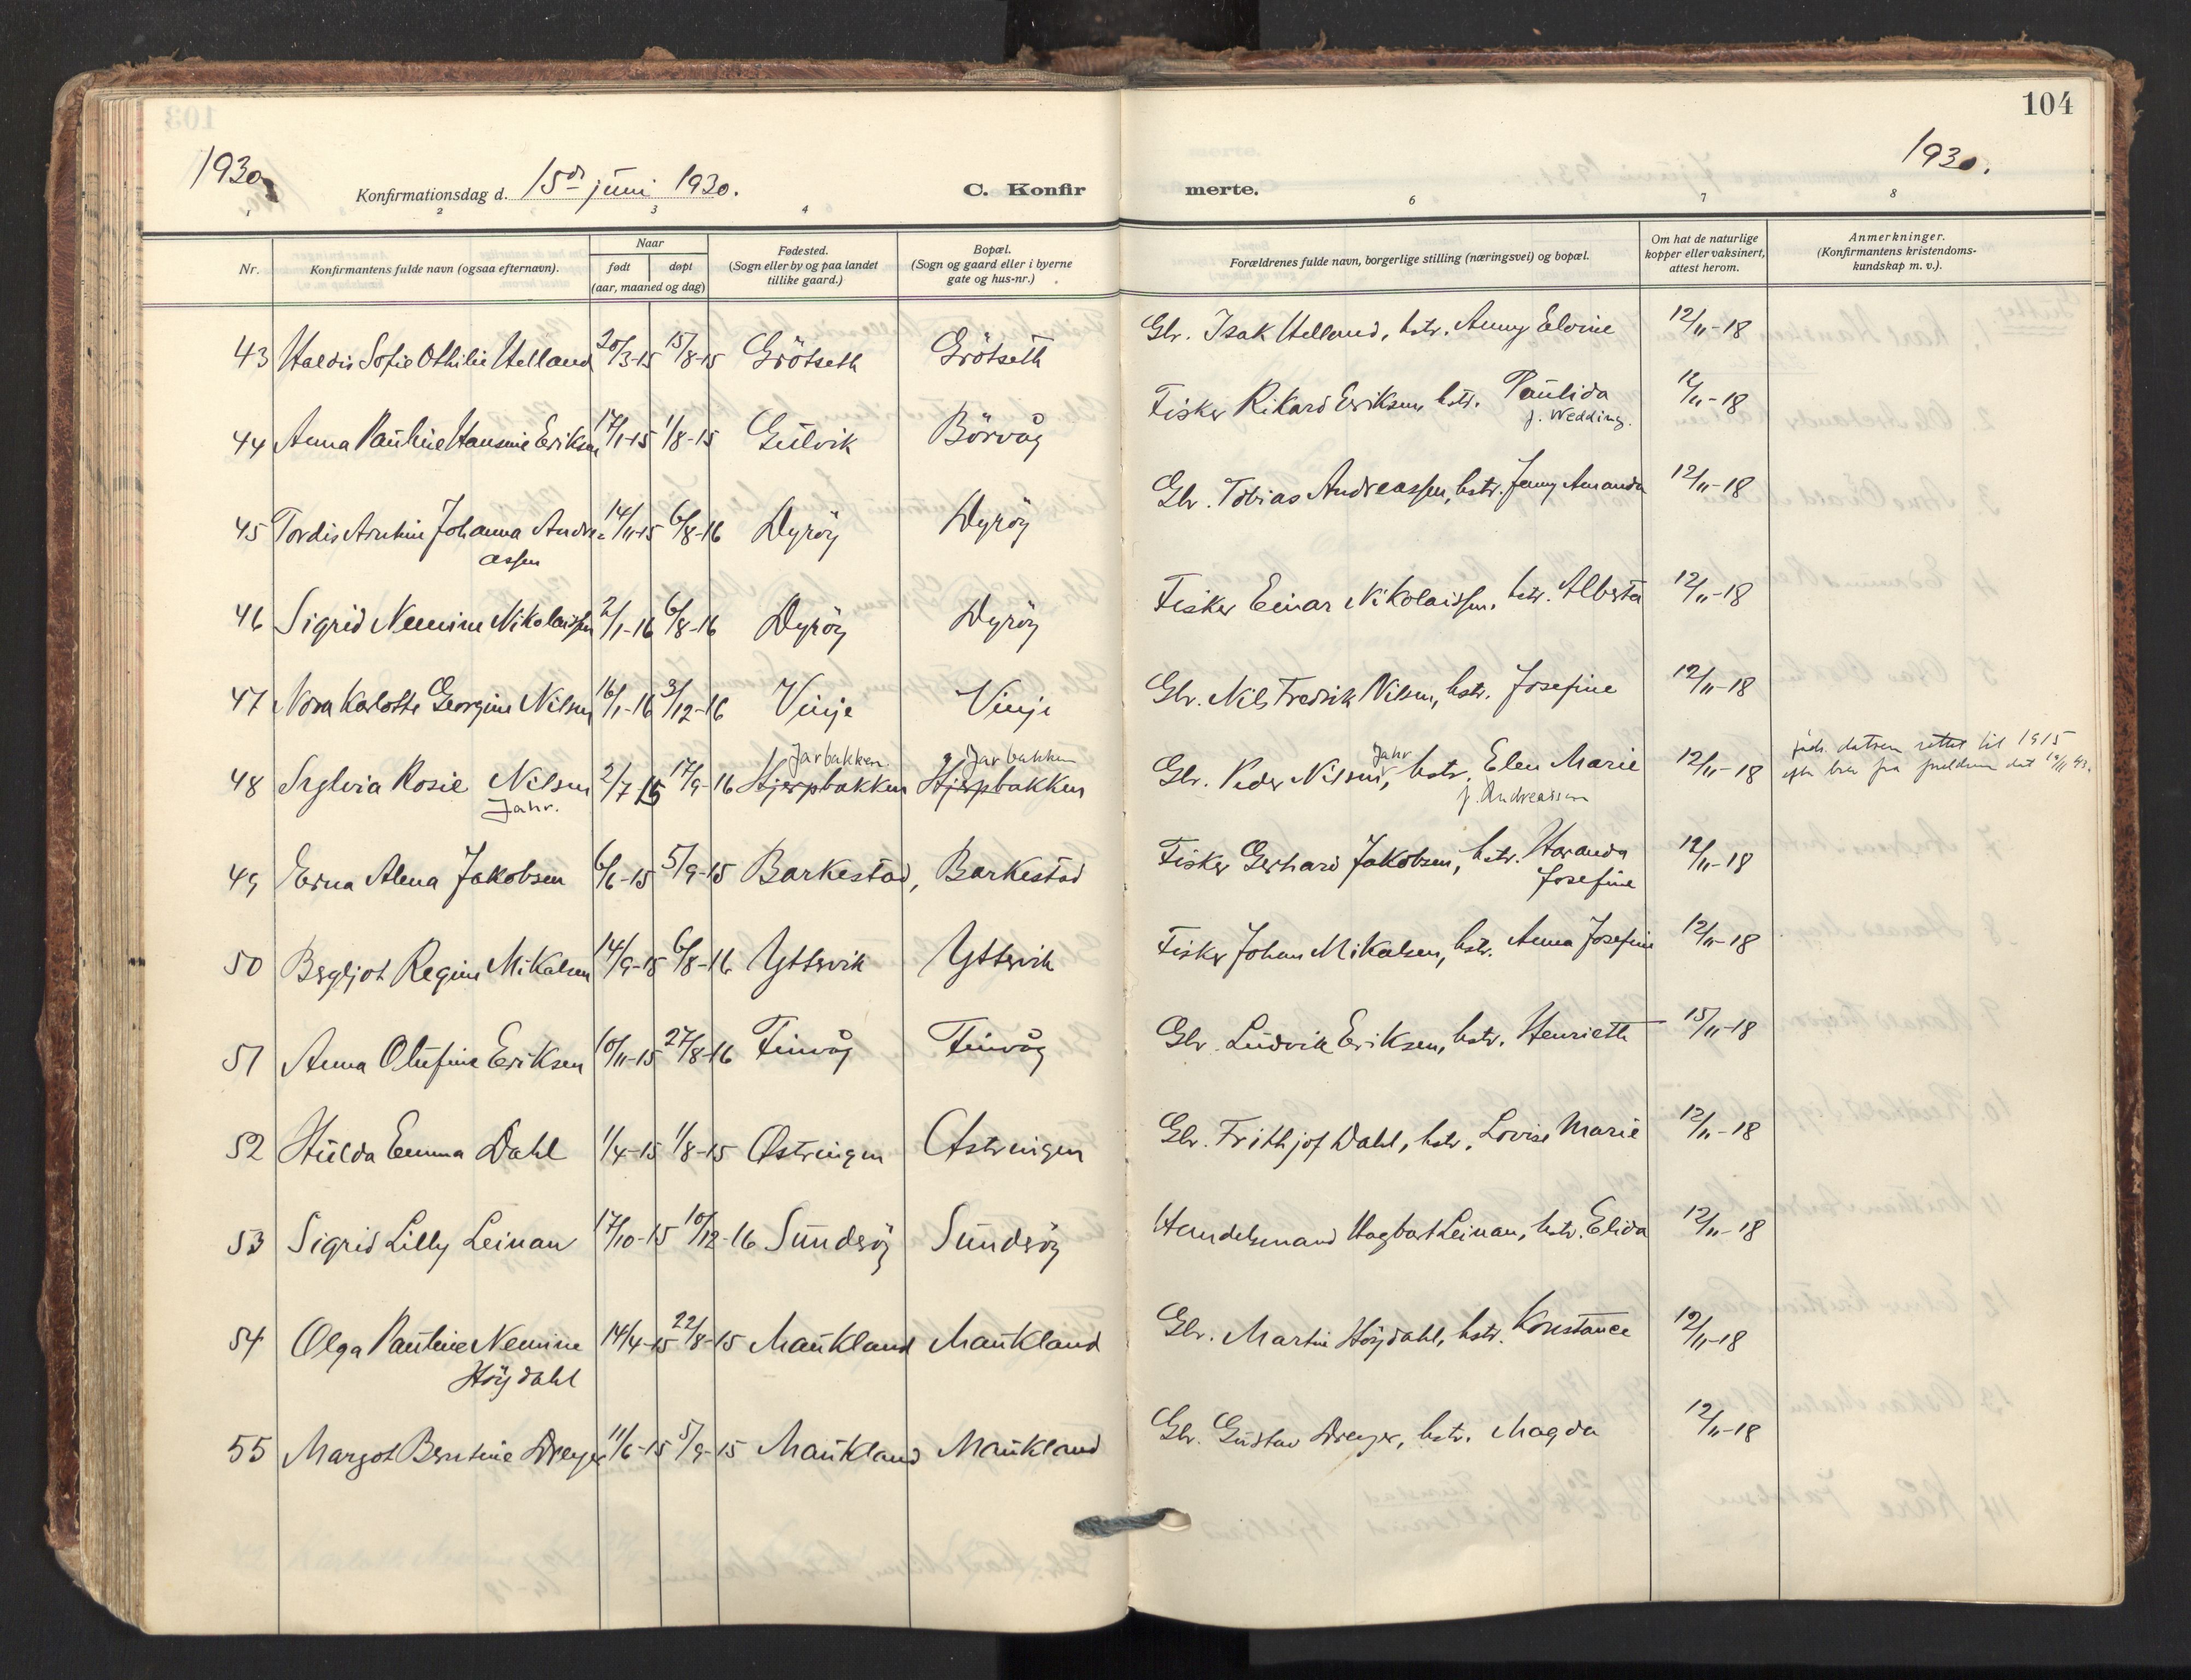 104
1930
1930.
Konfirmationsdag d. 15de juni 1930. C. Konfirmerte.
2 3 4 6 7 8
Nr. Konfirmantens fulde navn (ogsaa efternavn). Naar født døpt (aar, maaned og dag) Fødested. (Sogn eller by og paa landet tillike gaard.) Bopæl. (Sogn og gaard eller i byerne gate og hus-nr.) Forældrenes fulde navn, borgerlige stilling (næringsvei) og bopæl. Om hat de naturlige kopper eller vaksinert, attest herom. Anmerkninger. (Konfirmantens kristendomskundskap m. v.).
43 Haldis Sofie Othilie Helland 20/3-15 15/8-15 Grötseth Grötseth Gbr. Isak Helland, hstr. Anny Elvine 12/11-18
44 Anna Pauline Hansine Eriksen 17/1-15 1/8-15 Gulvik Börvåg Fisker Rikard Eriksen, hstr. Paulida 12/11-18
f. Wedding.
45 Tordis Arntine Johanna Andre= 14/11-15 6/8-16 Dyröy Dyröy Gbr. Tobias Andreassen, hstr. Jenny Amanda 12/11-18
assen
46 Sigrid Nemine Nikolaissen 2/1-16 6/8-16 Dyröy Dyröy Fisker Einar Nikolaissen, hstr. Alberta 12/11-18
47 Nora Karlotte Georgine Nilsen 16/1-16 3/12-16 Vinje Vinje Gbr. Nils Fredrik Nilsen, hstr. Josefine 12/11-18
Jarbakken. Jarbakken Jahr föds. datoen rettet til 1915
48 Sylvia Rosie Nilsen 2/7-15 17/9-16 Stjerpbakken Stjerpbakken Gbr. Peder Nilsen, hstr. Elen Marie 12/11-18 fra dat 43.
Jahr. f. Andreassen
49 Erna Alena Jakobsen 6/6-15 5/9-15 Barkestad, Barkestad Fisker Gerhard Jakobsen, hstr. Haranda 12/11-18
Josefine
50 Bergljot Regine Mikalsen 14/9-15 6/8-16 Yttervik Yttervik Fisker Johan Mikalsen, hstr. Anna Josefine 12/11-18
51 Anna Olufine Eriksen 10/11-15 27/8-16 Finvåg Finvåg Gbr. Ludvik Eriksen, hstr. Henriette 15/11-18
52 Hulda Emma Dahl 1/4-15 1/8-15 Åstringen Åstringen Gbr. Frithjof Dahl, hstr. Lovise Marie 12/11-18
53 Sigrid Lilly Leinan 17/10-15 10/12-16 Sunderöy Sunderöy Handelsmand Hagbart Leinan, hstr. Elida 12/11-18
54 Olga Pauline Nemine 14/4-15 22/8-15 Maukland Maukland Gbr. Martin Höydahl, hstr. Konstance 12/11-18
Höydahl
55 Margot Berntine Dreyer 11/6-15 5/9-15 Maukland Maukland Gbr. Gustav Dreyer, hstr. Magda 12/11-18